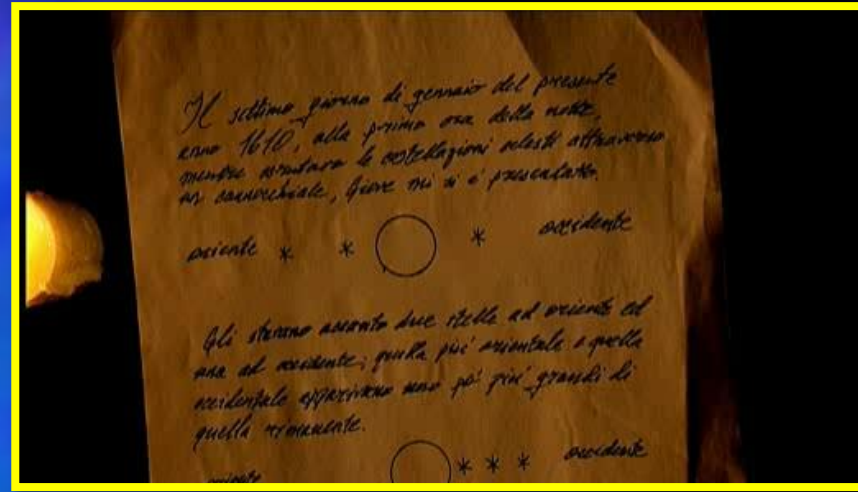 Il settimo giorno di gennaio del presente
anno 1610, alla prima ora della notte,
mentre scrutavo le costellazioni celesti attraverso
un cannocchiale, Giove mi si è presentato.
oriente * * * occidente
Gli stavano accanto due stelle ad oriente ed
una ad occidente; quella più orientale e quella
occidentale apparivano uno pò più grandi di
quella rimanente.
oriente * * * occidente